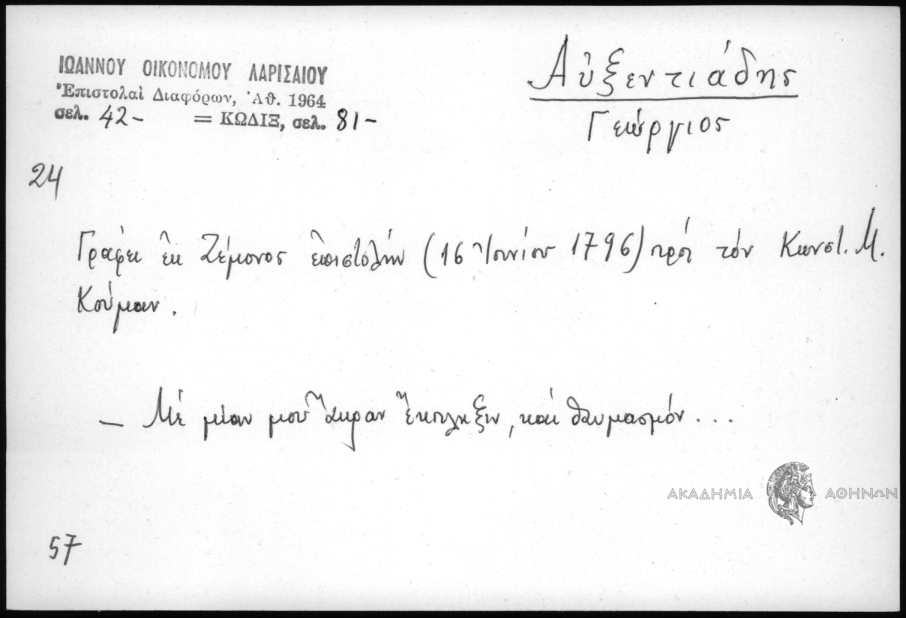 ΙΩΑΝΝΟΥ ΟΙΚΟΝΟΜΟΥ ΛΑΡΙΣΑΙΟΥ
Ἐπιστολαὶ Διαφόρων, Ἀθ. 1964
σελ. 42- = ΚΩΔΙΞ, σελ. 81-
Αὐξεντιάδης
Γεώργιος
24
Γράφει ἐκ Ζέμονος ἐπιστολήν (16 Ἰουνίου 1796) πρός τόν Κωνστ. Μ.
Κούμαν.
— Μέ μίαν μου ἄκραν ἔκπληξιν, καί θαυμασμόν...
ΑΚΑΔΗΜΙΑ ΑΘΗΝΩΝ
57